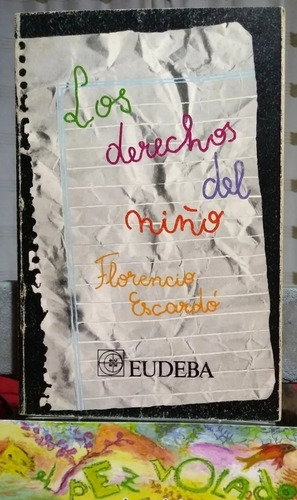 Los
derechos
del
niño
Florencio
Escardó
EUDEBA
el PEZ VOLADO